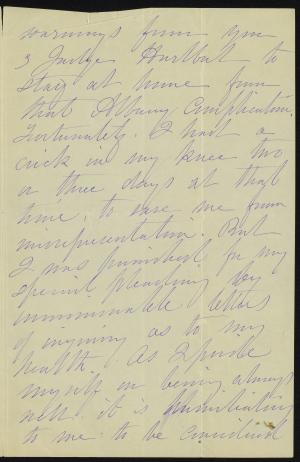 warnings from you
& Judge Hurlbut to
stay at home from
that Albany Complication.
Fortunately, I had a
crick in my knee two
or three days at that
time, to save me from
misrepresentation. But
I was punished for my
special pleading by
innumerable letters
of inquiry as to my
health. As I pride
myself on being always
well it is humiliating
to me to be considered